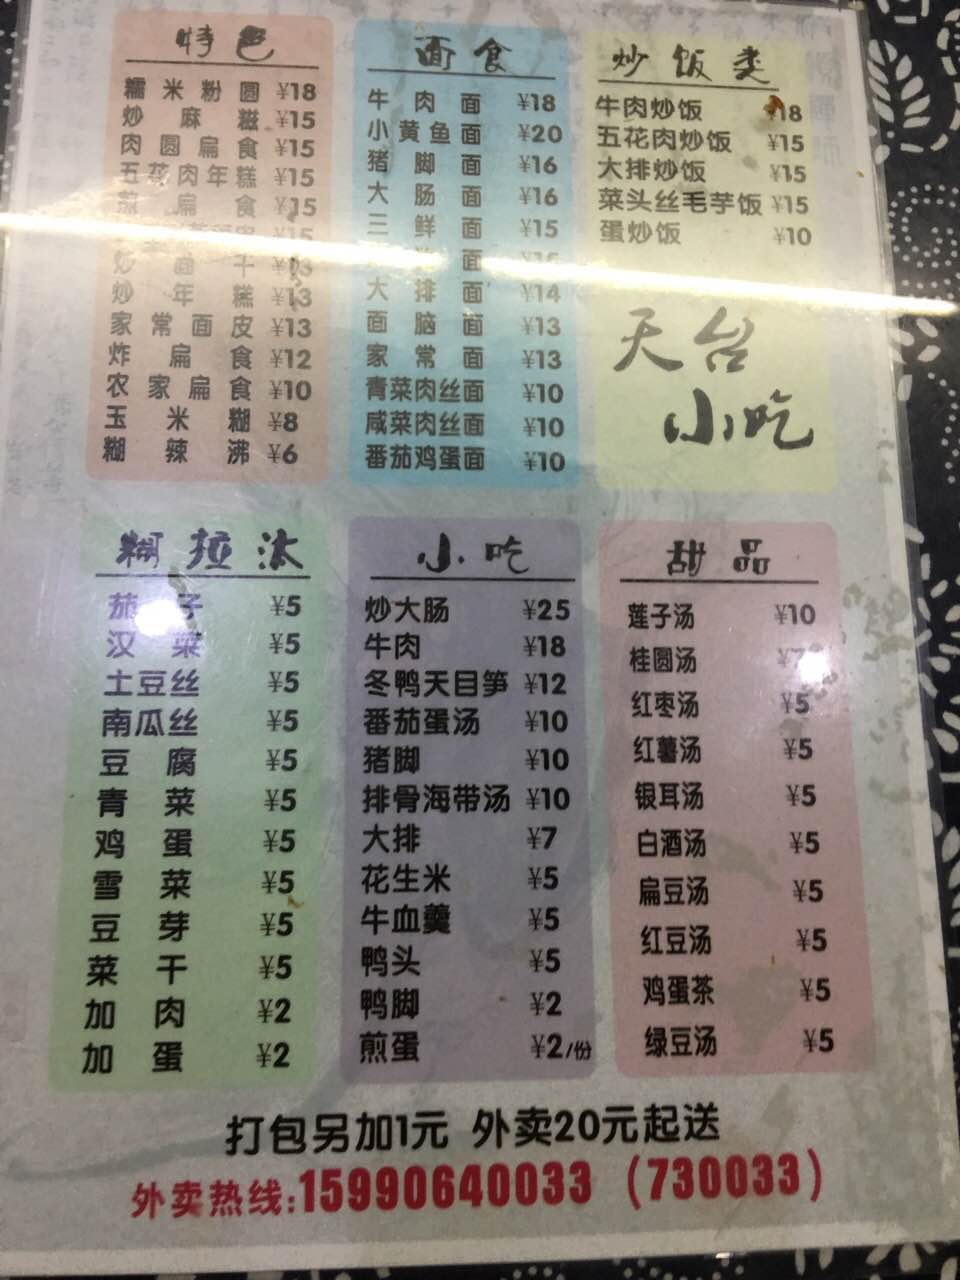 特色
糯米粉圆 ¥18
炒麻糍 ¥15
肉圆扁食 ¥15
五花肉年糕 ¥15
煎扁食 ¥15
¥15
炒面干
炒年糕 ¥13
家常面皮 ¥13
炸扁食 ¥12
农家扁食 ¥10
玉米糊 ¥8
糊辣沸 ¥6
面食
牛肉面 ¥18
小黄鱼面 ¥20
猪脚面 ¥16
大肠面 ¥16
三鲜面 ¥15
面
大排面 ¥14
面脑面 ¥13
家常面 ¥13
青菜肉丝面 ¥10
咸菜肉丝面 ¥10
番茄鸡蛋面 ¥10
炒饭类
牛肉炒饭 ¥18
五花肉炒饭 ¥15
大排炒饭 ¥15
菜头丝毛芋饭 ¥15
蛋炒饭 ¥10
天台
小吃
糊拉汰
茄子 ¥5
汉菜 ¥5
土豆丝 ¥5
南瓜丝 ¥5
豆腐 ¥5
青菜 ¥5
鸡蛋 ¥5
雪菜 ¥5
豆芽 ¥5
菜干 ¥5
加肉 ¥2
加蛋 ¥2
小吃
炒大肠 ¥25
牛肉 ¥18
冬鸭天目笋 ¥12
番茄蛋汤 ¥10
猪脚 ¥10
排骨海带汤 ¥10
大排 ¥7
花生米 ¥5
牛血羹 ¥5
鸭头 ¥5
鸭脚 ¥2
煎蛋 ¥2/份
甜品
莲子汤 ¥10
桂圆汤 ¥7
红枣汤 ¥5
红薯汤 ¥5
银耳汤 ¥5
白酒汤 ¥5
扁豆汤 ¥5
红豆汤 ¥5
鸡蛋茶 ¥5
绿豆汤 ¥5
打包另加1元 外卖20元起送
外卖热线:15990640033（730033）